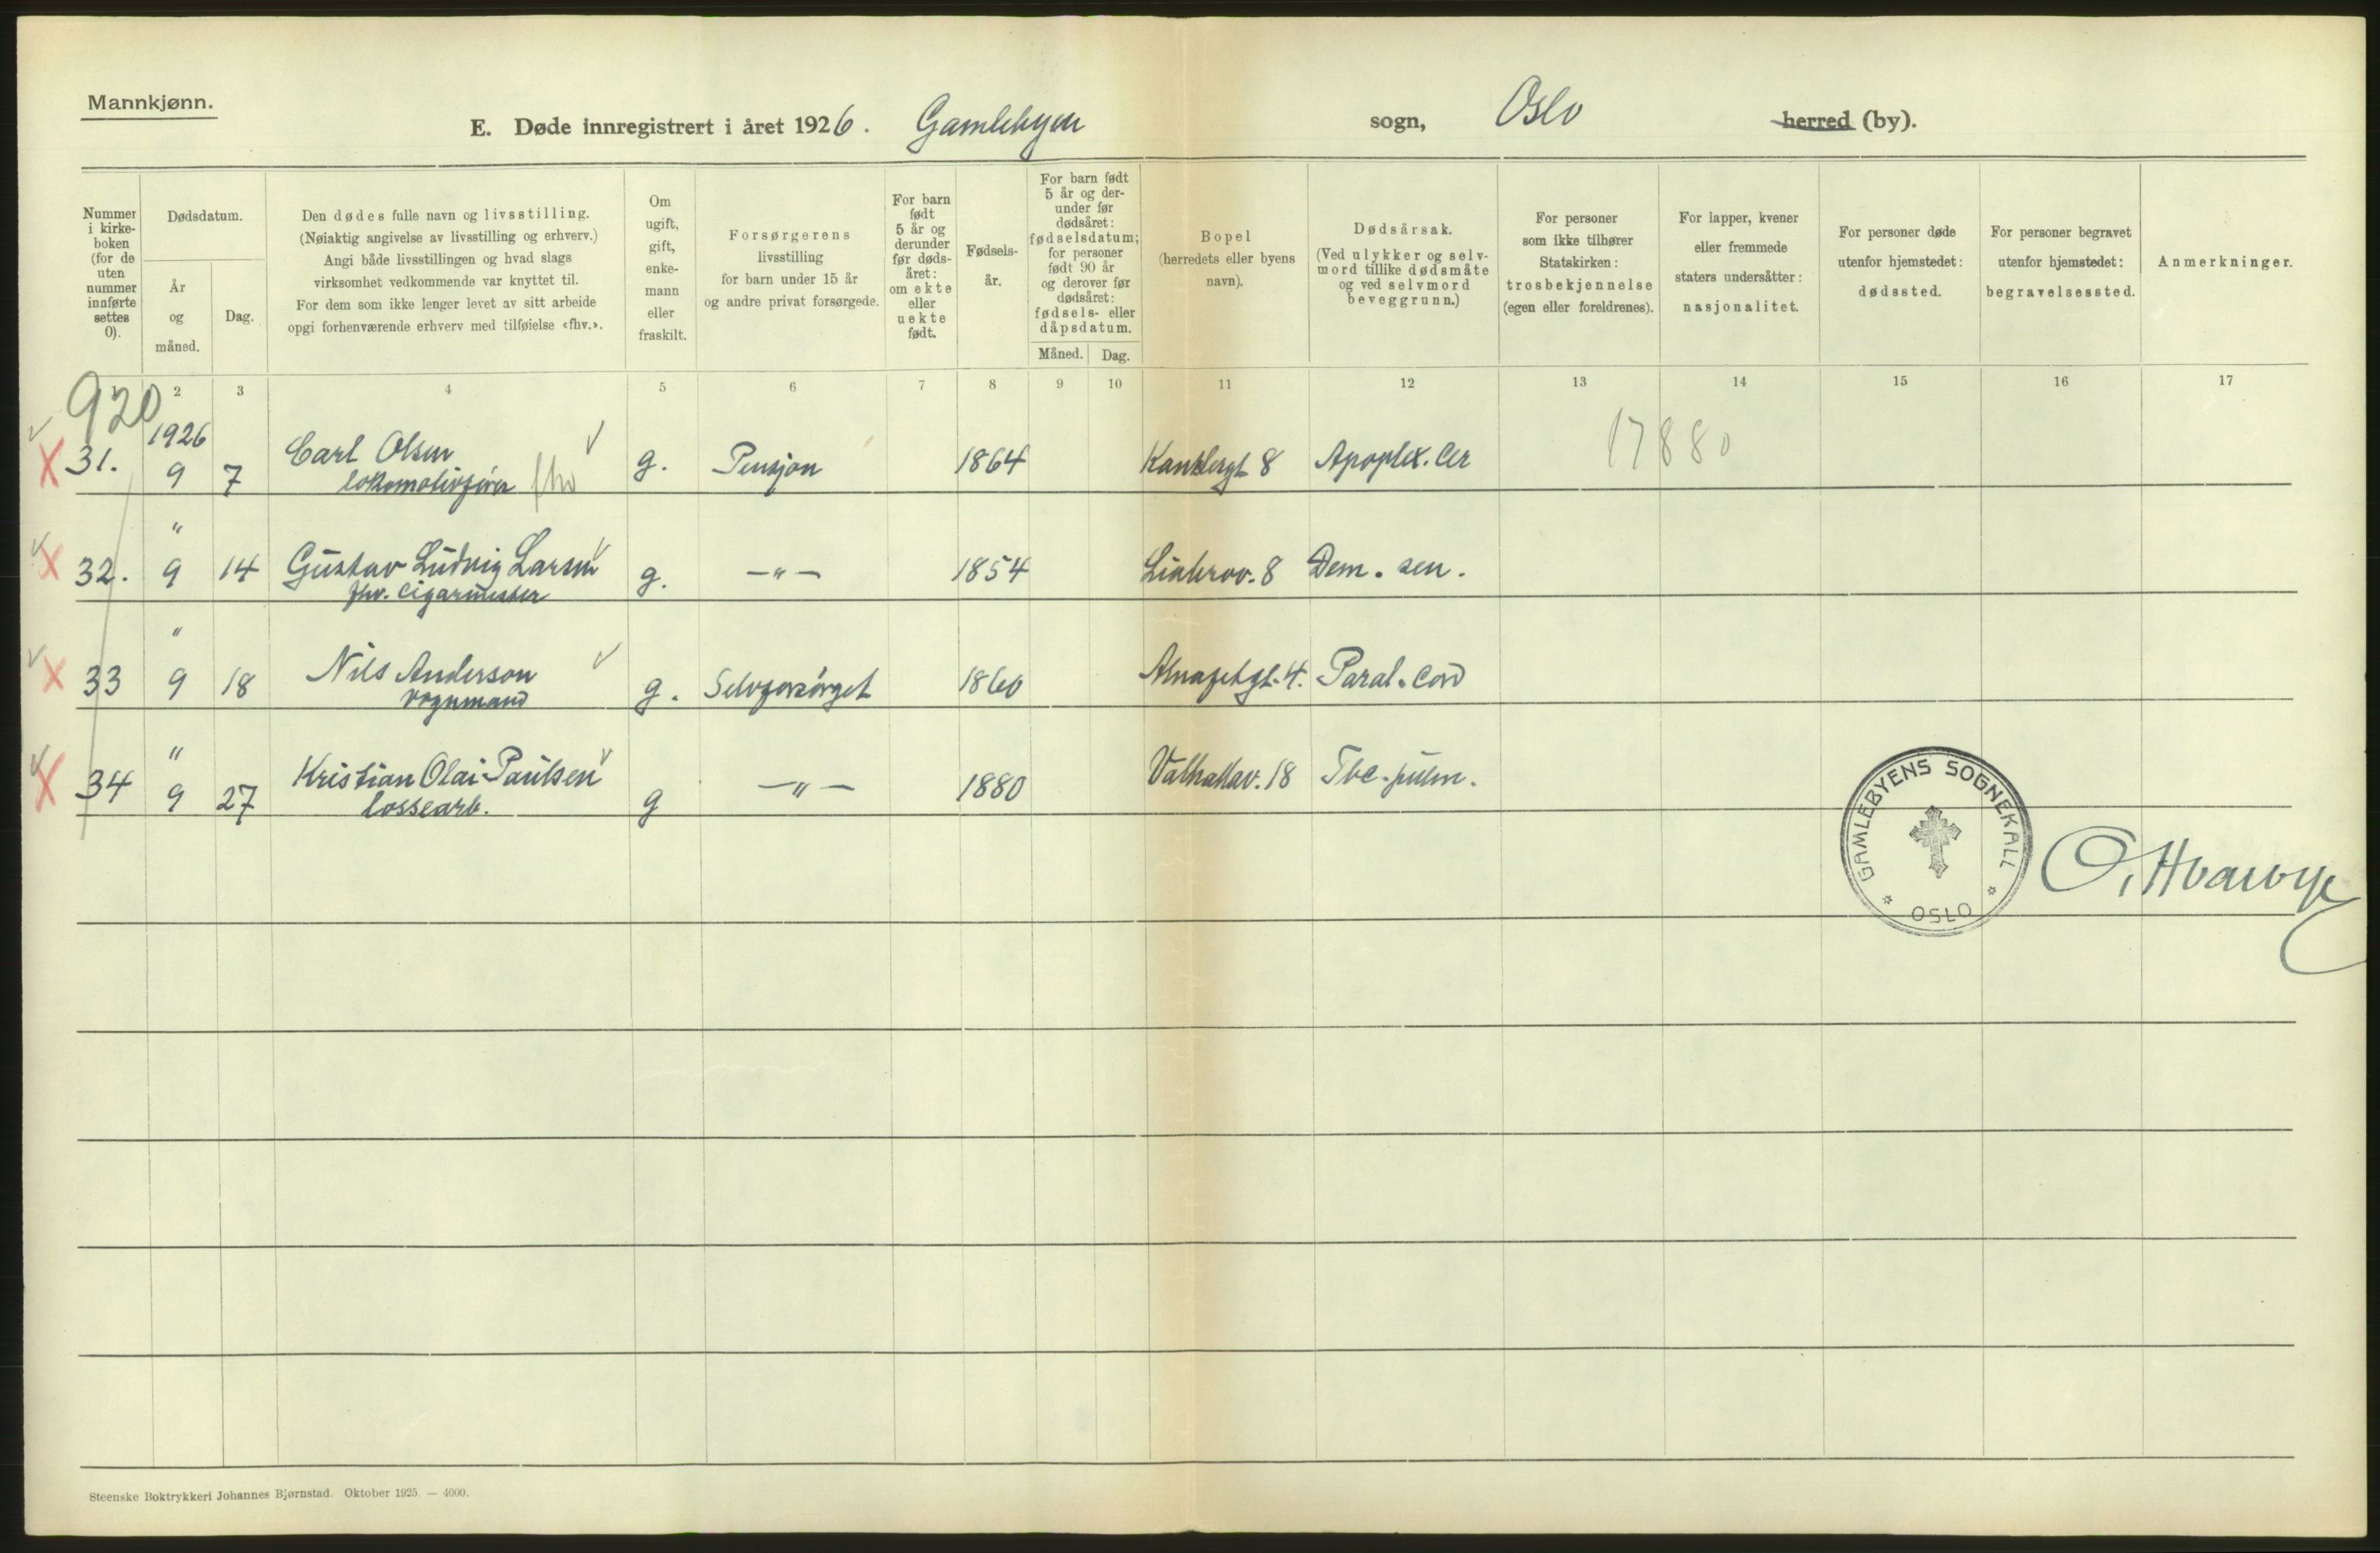 Mannkjønn.
E. Døde innregistrert i året 1926. Gamlebyen sogn, Oslo herred (by).
Nummer i kirke- boken (for de uten nummer innførte settes 0).
Dødsdatum.
År og måned.
Dag.
Den dødes fulle navn og livsstilling.
(Nøiaktig angivelse av livsstilling og erhverv.)
Angi både livsstillingen og hvad slags
virksomhet vedkommende var knyttet til.
For dem som ikke lenger levet av sitt arbeide
opgi forhenværende erhverv med tilføielse «fhv.».
Om ugift, gift, enke- mann eller fraskilt.
Forsørgerens
livsstilling
for barn under 15 år
og andre privat forsørgede.
For barn født 5 år og derunder før døds- året: om ekte eller uekte født.
Fødsels- år.
For barn født 5 år og der- under før dødsåret: fødselsdatum; for personer født 90 år og derover før dødsåret: fødsels- eller dåpsdatum.
Måned. Dag.
Bopel
(herredets eller byens
navn).
Dødsårsak.
(Ved ulykker og selv-
mord tillike dødsmåte
og ved selvmord
beveggrunn.)
For personer
som ikke tilhører
Statskirken:
trosbekjennelse
(egen eller foreldrenes).
For lapper, kvener
eller fremmede
staters undersåtter:
nasjonalitet.
For personer døde
utenfor hjemstedet:
dødssted.
For personer begravet
utenfor hjemstedet:
begravelsessted.
Anmerkninger.
1 2 3 4 5 6 7 8 9 10 11 12 13 14 15 16 17
920
1926
31. 9 7 Carl Olsen g. Pensjon 1864 Kanslergt 8 Apoplex. Cer 17880
lokomotivfører fhv
"
32. 9 14 Gustav Ludvig Larsen g. —"— 1854 Liabrov. 8 Dem. sen.
fhv. Cigarmester
"
33 9 18 Nils Anderson g. Selvforsørget 1860 Almafetgt. 4. Paral. Cord
vognmand
"
34 9 27 Kristian Olai Paulsen g —"— 1880 Valhallav. 18 Tbc. pulm.
lossearb.
GAMLEBYENS SOGNEKALL
OSLO
Steenske Boktrykkeri Johannes Bjørnstad. Oktober 1925. — 4000.